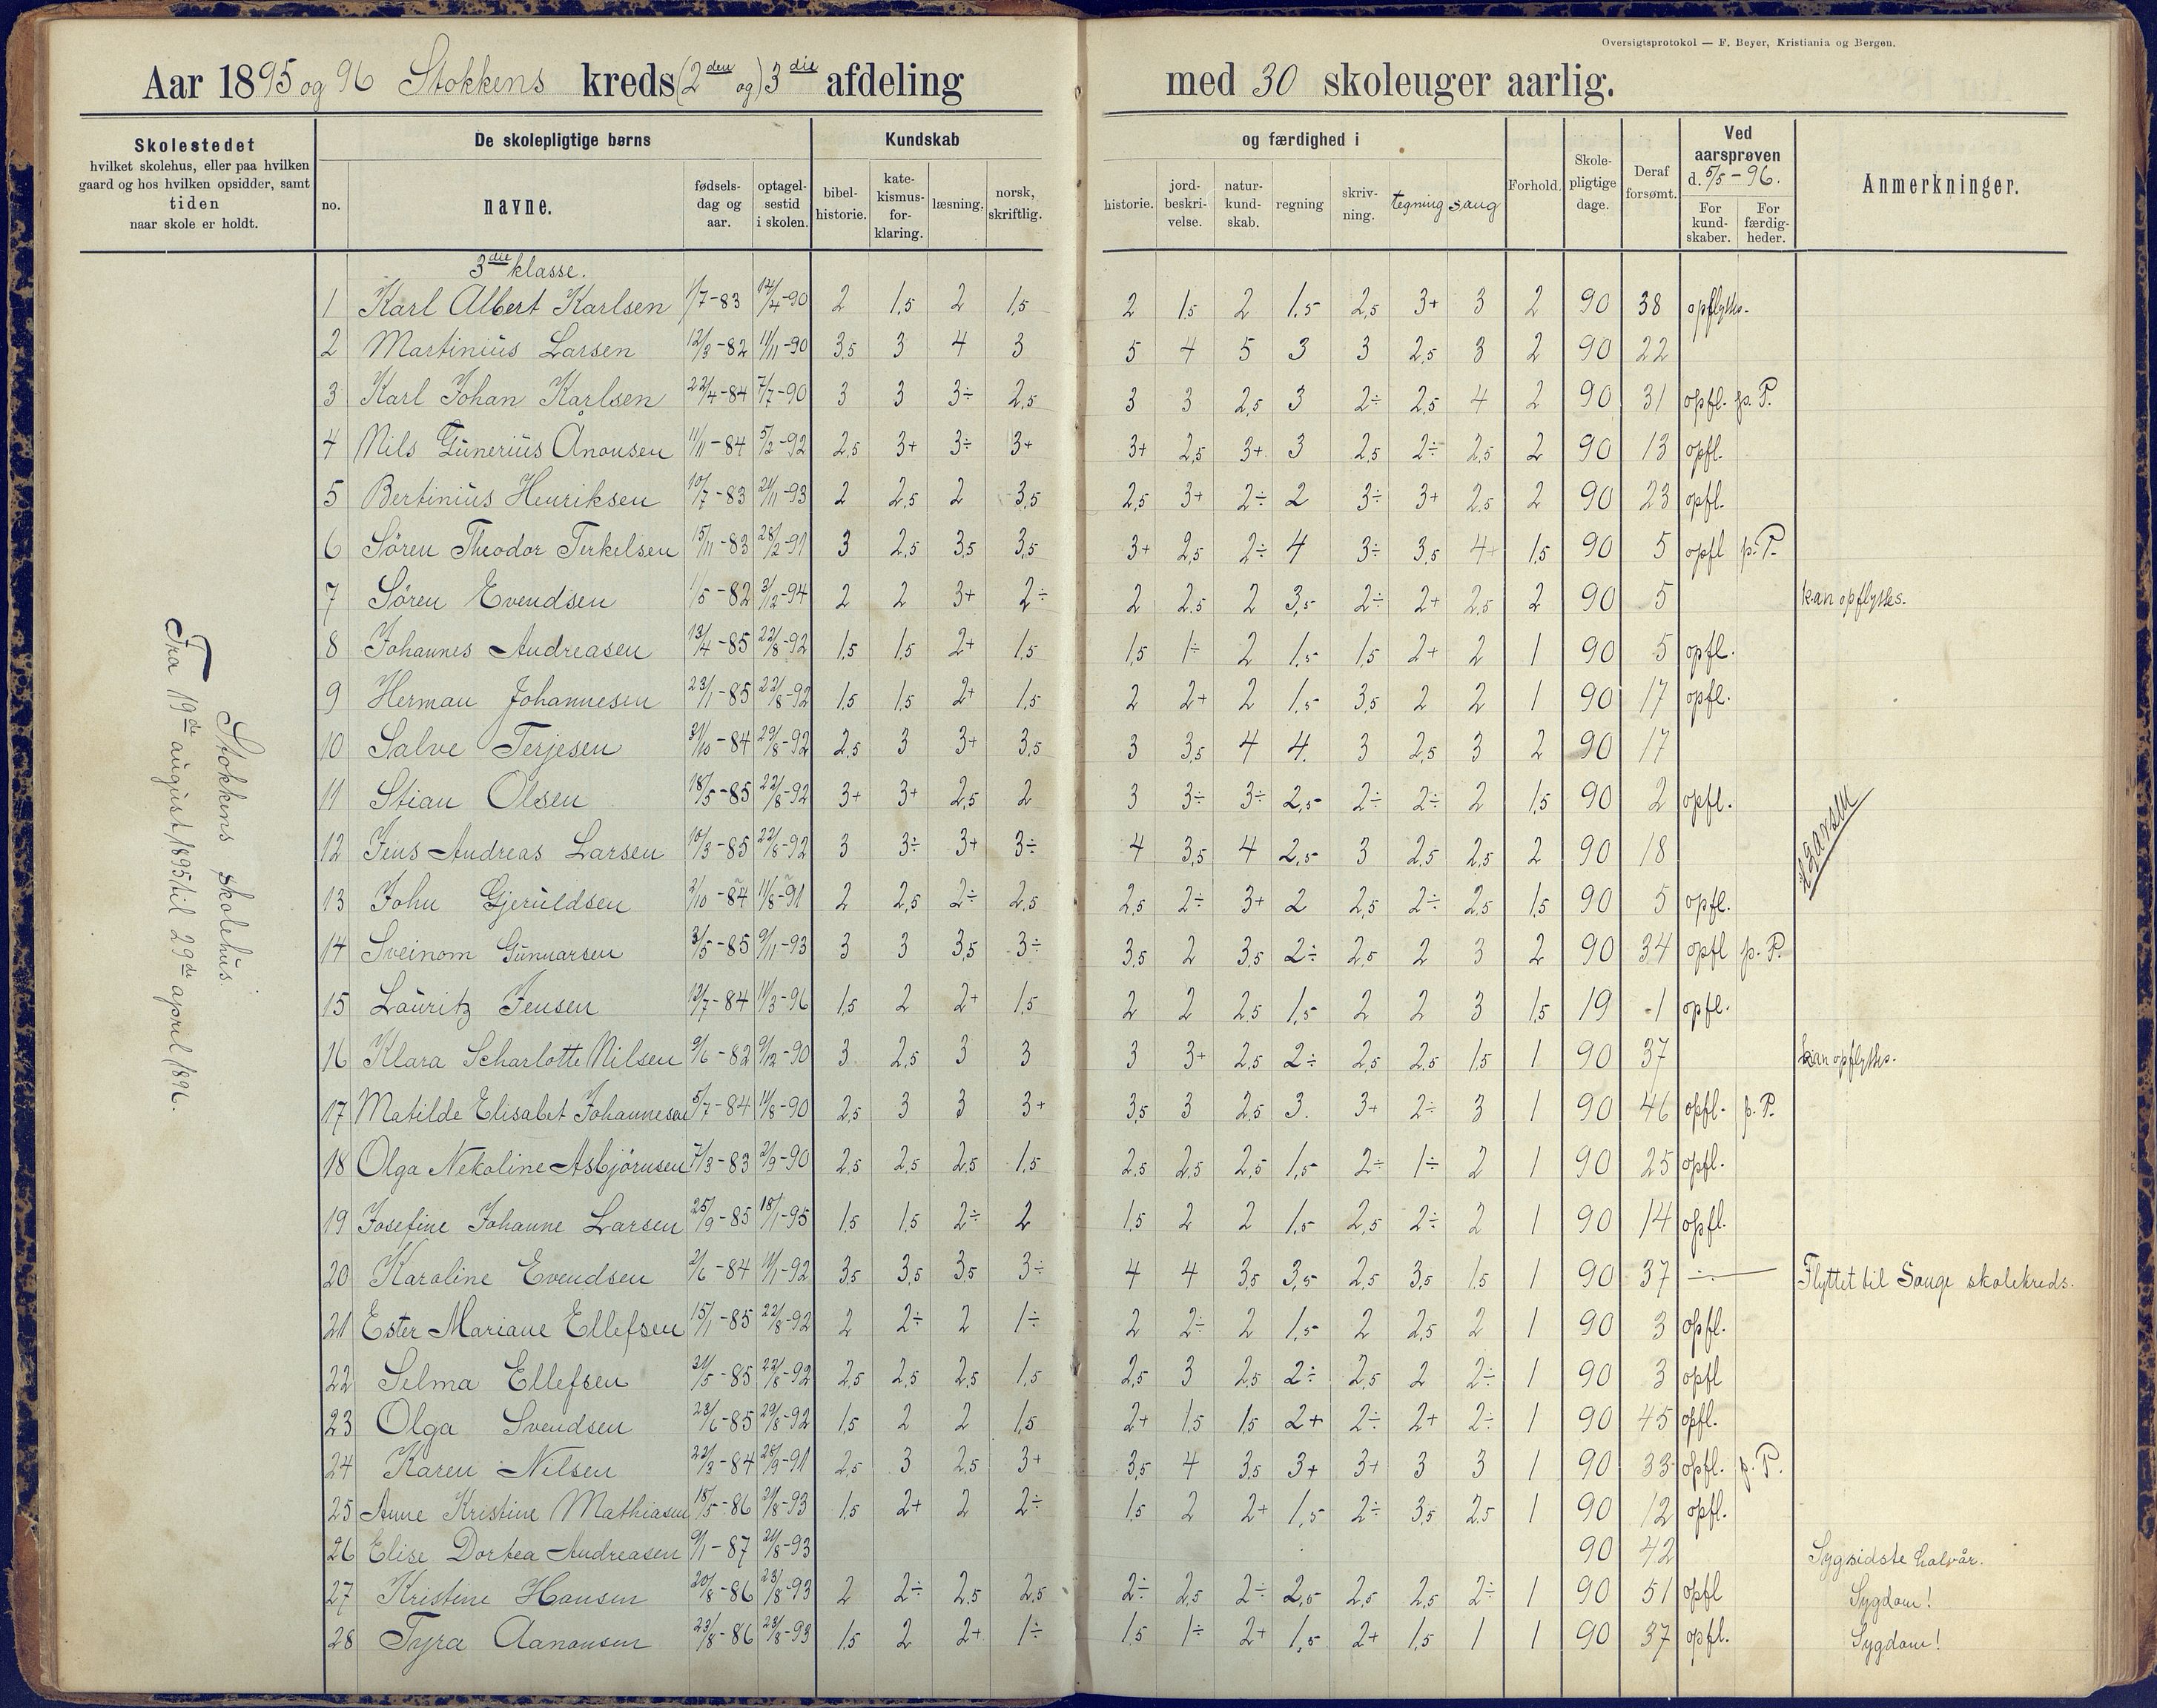 Oversigtsprotokol — F. Beyer, Kristiania og Bergen.
Aar 1895 og 96 Stokkens kreds (2den og) 3die afdeling med 30 skoleuger aarlig.
Skolestedet hvilket skolehus, eller paa hvilken gaard og hos hvilken opsidder, samt tiden naar skole er holdt.
De skolepligtige børns
no.
navne.
fødsels-dag og aar.
optagel-sestid i skolen.
Kundskab og færdighed i
bibel-historie.
kate-kismus-for-klaring.
læsning.
norsk, skriftlig.
historie.
jord-beskri-velse.
natur-kund-skab.
regning
skriv-ning.
tegning
sang
Forhold.
Skole-pligtige dage.
Deraf forsømt.
Ved aarsprøven d. 5/5 - 96.
For kund-skaber.
For færdig-heder.
Anmerkninger.
Stokkens skolehus.
Fra 19de august 1895 til 29de april 1896.
3die klasse.
1 Karl Albert Karlsen 1/7-83 14/4-90 2 1,5 2 1,5 2 1,5 2 1,5 2,5 3+ 3 2 90 38 opflyttes.
2 Martinius Larsen 12/3-82 11/11-90 3,5 3 4 3 5 4 5 3 3 2,5 3 2 90 22
3 Karl Johan Karlsen 22/4-84 7/7-90 3 3 3÷ 2,5 3 3 2,5 3 2÷ 2,5 4 2 90 31 opfl. p. P.
4 Nils Gunerius Anonsen 11/11-84 5/2-92 2,5 3+ 3÷ 3+ 3+ 2,5 3+ 3 2,5 2÷ 2,5 2 90 13 opfl.
5 Bertinius Henriksen 10/7-83 21/11-93 2 2,5 2 3,5 2,5 3+ 2÷ 2 3÷ 3+ 2,5 2 90 23 opfl.
6 Sören Theodor Terkelsen 15/11-83 28/2-91 3 2,5 3,5 3,5 3+ 2,5 2÷ 4 3÷ 3,5 4+ 1,5 90 5 opfl p. P.
7 Sören Evendsen 1/5-82 3/12-94 2 2 3+ 2÷ 2 2,5 2 3,5 2÷ 2+ 2,5 2 90 5 kan opflyttes.
8 Johannes Andreasen 13/4-85 22/8-92 1,5 1,5 2+ 1,5 1,5 1÷ 2 1,5 1,5 2+ 2 1 90 5 opfl.
9 Herman Johannesen 23/1-85 22/8-92 1,5 1,5 2+ 1,5 2 2+ 2 1,5 3,5 2 2 1 90 17 opfl.
10 Salve Terjesen 31/10-84 29/8-92 2,5 3 3+ 3,5 3 3,5 4 4. 3 2,5 3 2 90 17
11 Stian Olsen 18/5-85 22/8-92 3+ 3+ 2,5 2 3 3÷ 3÷ 2,5 2÷ 2÷ 2 1,5 90 2 opfl.
12 Jens Andreas Larsen 10/3-85 22/8-92 3 3÷ 3+ 3÷ 4 3,5 4 2,5 3 2,5 2,5 2 90 18
13 John Gjeruldsen 2/10-84 11/8-91 2 2,5 2÷ 2,5 2,5 2÷ 3+ 2 2,5 2÷ 2,5 1,5 90 5 opfl.
14 Sveinom Gunnarsen 3/5-85 9/11-93 3 3 3,5 3÷ 3,5 2 3,5 2÷ 2,5 2 3 2 90 34 opfl p. P.
15 Lauritz Jensen 12/7-84 11/3-96 1,5 2 2+ 1,5 2 2 2,5 1,5 2 2 3 1,5 19 1 opfl.
16 Klara Scharlotte Nilsen 9/6-82 9/12-90 3 2,5 3 3 3 3+ 2,5 2÷ 2,5 2,5 1,5 1 90 37 kan opflyttes.
17 Matilde Elisabet Johannesen 5/7-84 11/8-90 2,5 3 3 3+ 3,5 3 2,5 3. 3+ 2÷ 3 1 90 46 opfl. p. P.
18 Olga Nekoline Asbjörnsen 7/3-83 2/9-90 2,5 2,5 2,5 1,5 2,5 2,5 2,5 1,5 2÷ 1÷ 2 1 90 25 opfl.
19 Josefine Johanne Larsen 25/9-85 18/1-95 1,5 1,5 2÷ 2 1,5 2 2 1,5 2,5 2÷ 2 1 90 14 opfl.
20 Karoline Evendsen 2/6-84 11/1-92 3,5 3,5 3,5 3÷ 4 4 3,5 3,5 2,5 3,5 1,5 1 90 37 Flyttet til Songe skolekreds.
21 Ester Mariane Ellefsen 15/1-85 22/8-92 2 2÷ 2 1÷ 2 2÷ 2 1,5 2 2,5 2 1 90 3 opfl.
22 Selma Ellefsen 31/5-85 22/8-92 2,5 2,5 2,5 1,5 2,5 3 2,5 2÷ 2,5 2 2÷ 1 90 3 opfl
23 Olga Svendsen 23/6-85 29/8-92 1,5 2 2 1,5 2+ 1,5 1,5 2+ 2÷ 2+ 2÷ 1 90 45 opfl.
24 Karen Nilsen 22/3-84 28/9-91 2,5 3 2,5 3+ 3,5 4 3,5 3+ 3+ 3 3 1 90 33 opfl. p. P.
25 Anne Kristine Mathiasen 18/5-86 21/8-93 1,5 2+ 2 2÷ 1,5 2 2+ 1,5 2÷ 3,5 2,5 1 90 12 opfl.
26 Elise Dortea Andreasen 9/1-87 21/8-93 90 42 Syg sidste halvår.
27 Kristine Hansen 20/8-86 23/8-93 2 2÷ 2,5 2,5 2÷ 2,5 2÷ 2,5 2,5 2,5 2÷ 1 90 51 opfl Sygdom!
28 Tyra Aanonsen 23/8-86 23/8-93 1,5 2 2+ 1÷ 1,5 1÷ 2+ 1,5 2+ 1,5 1 1 90 37 opfl. Sygdom!